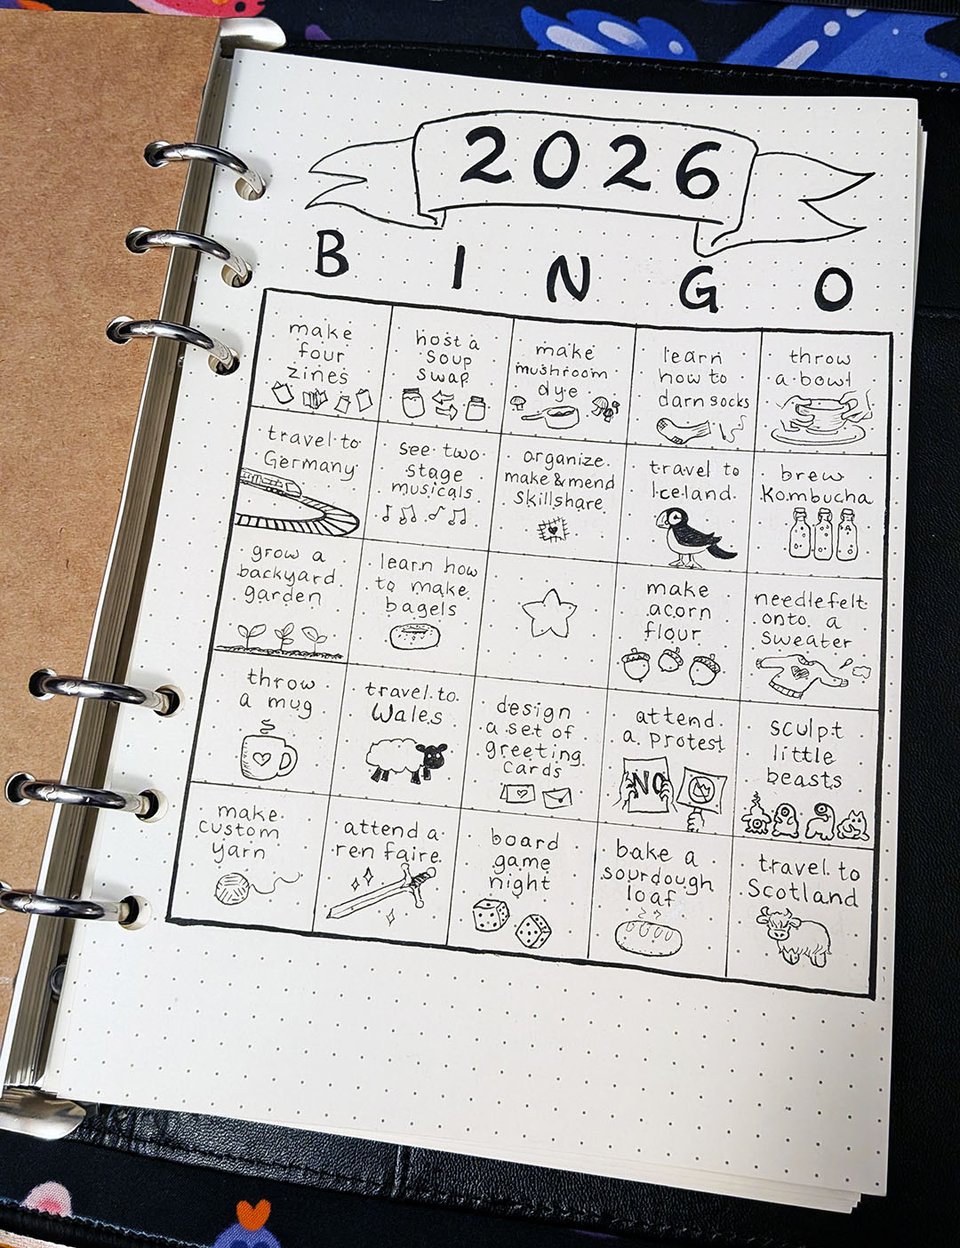 2026
B I N G O
make
four
zines
host a
soup
swap
make
mushroom
dye
learn
how to
darn socks
throw
a bowl
travel to
Germany
see two
stage
musicals
organize
make & mend
skillshare
travel to
Iceland
brew
kombucha
grow a
backyard
garden
learn how
to make
bagels
make
acorn
flour
needlefelt
onto a
sweater
throw
a mug
travel to
Wales
design
a set of
greeting
cards
attend
a protest
NO
sculpt
little
beasts
make
custom
yarn
attend a
ren faire
board
game
night
bake a
sourdough
loaf
travel to
Scotland